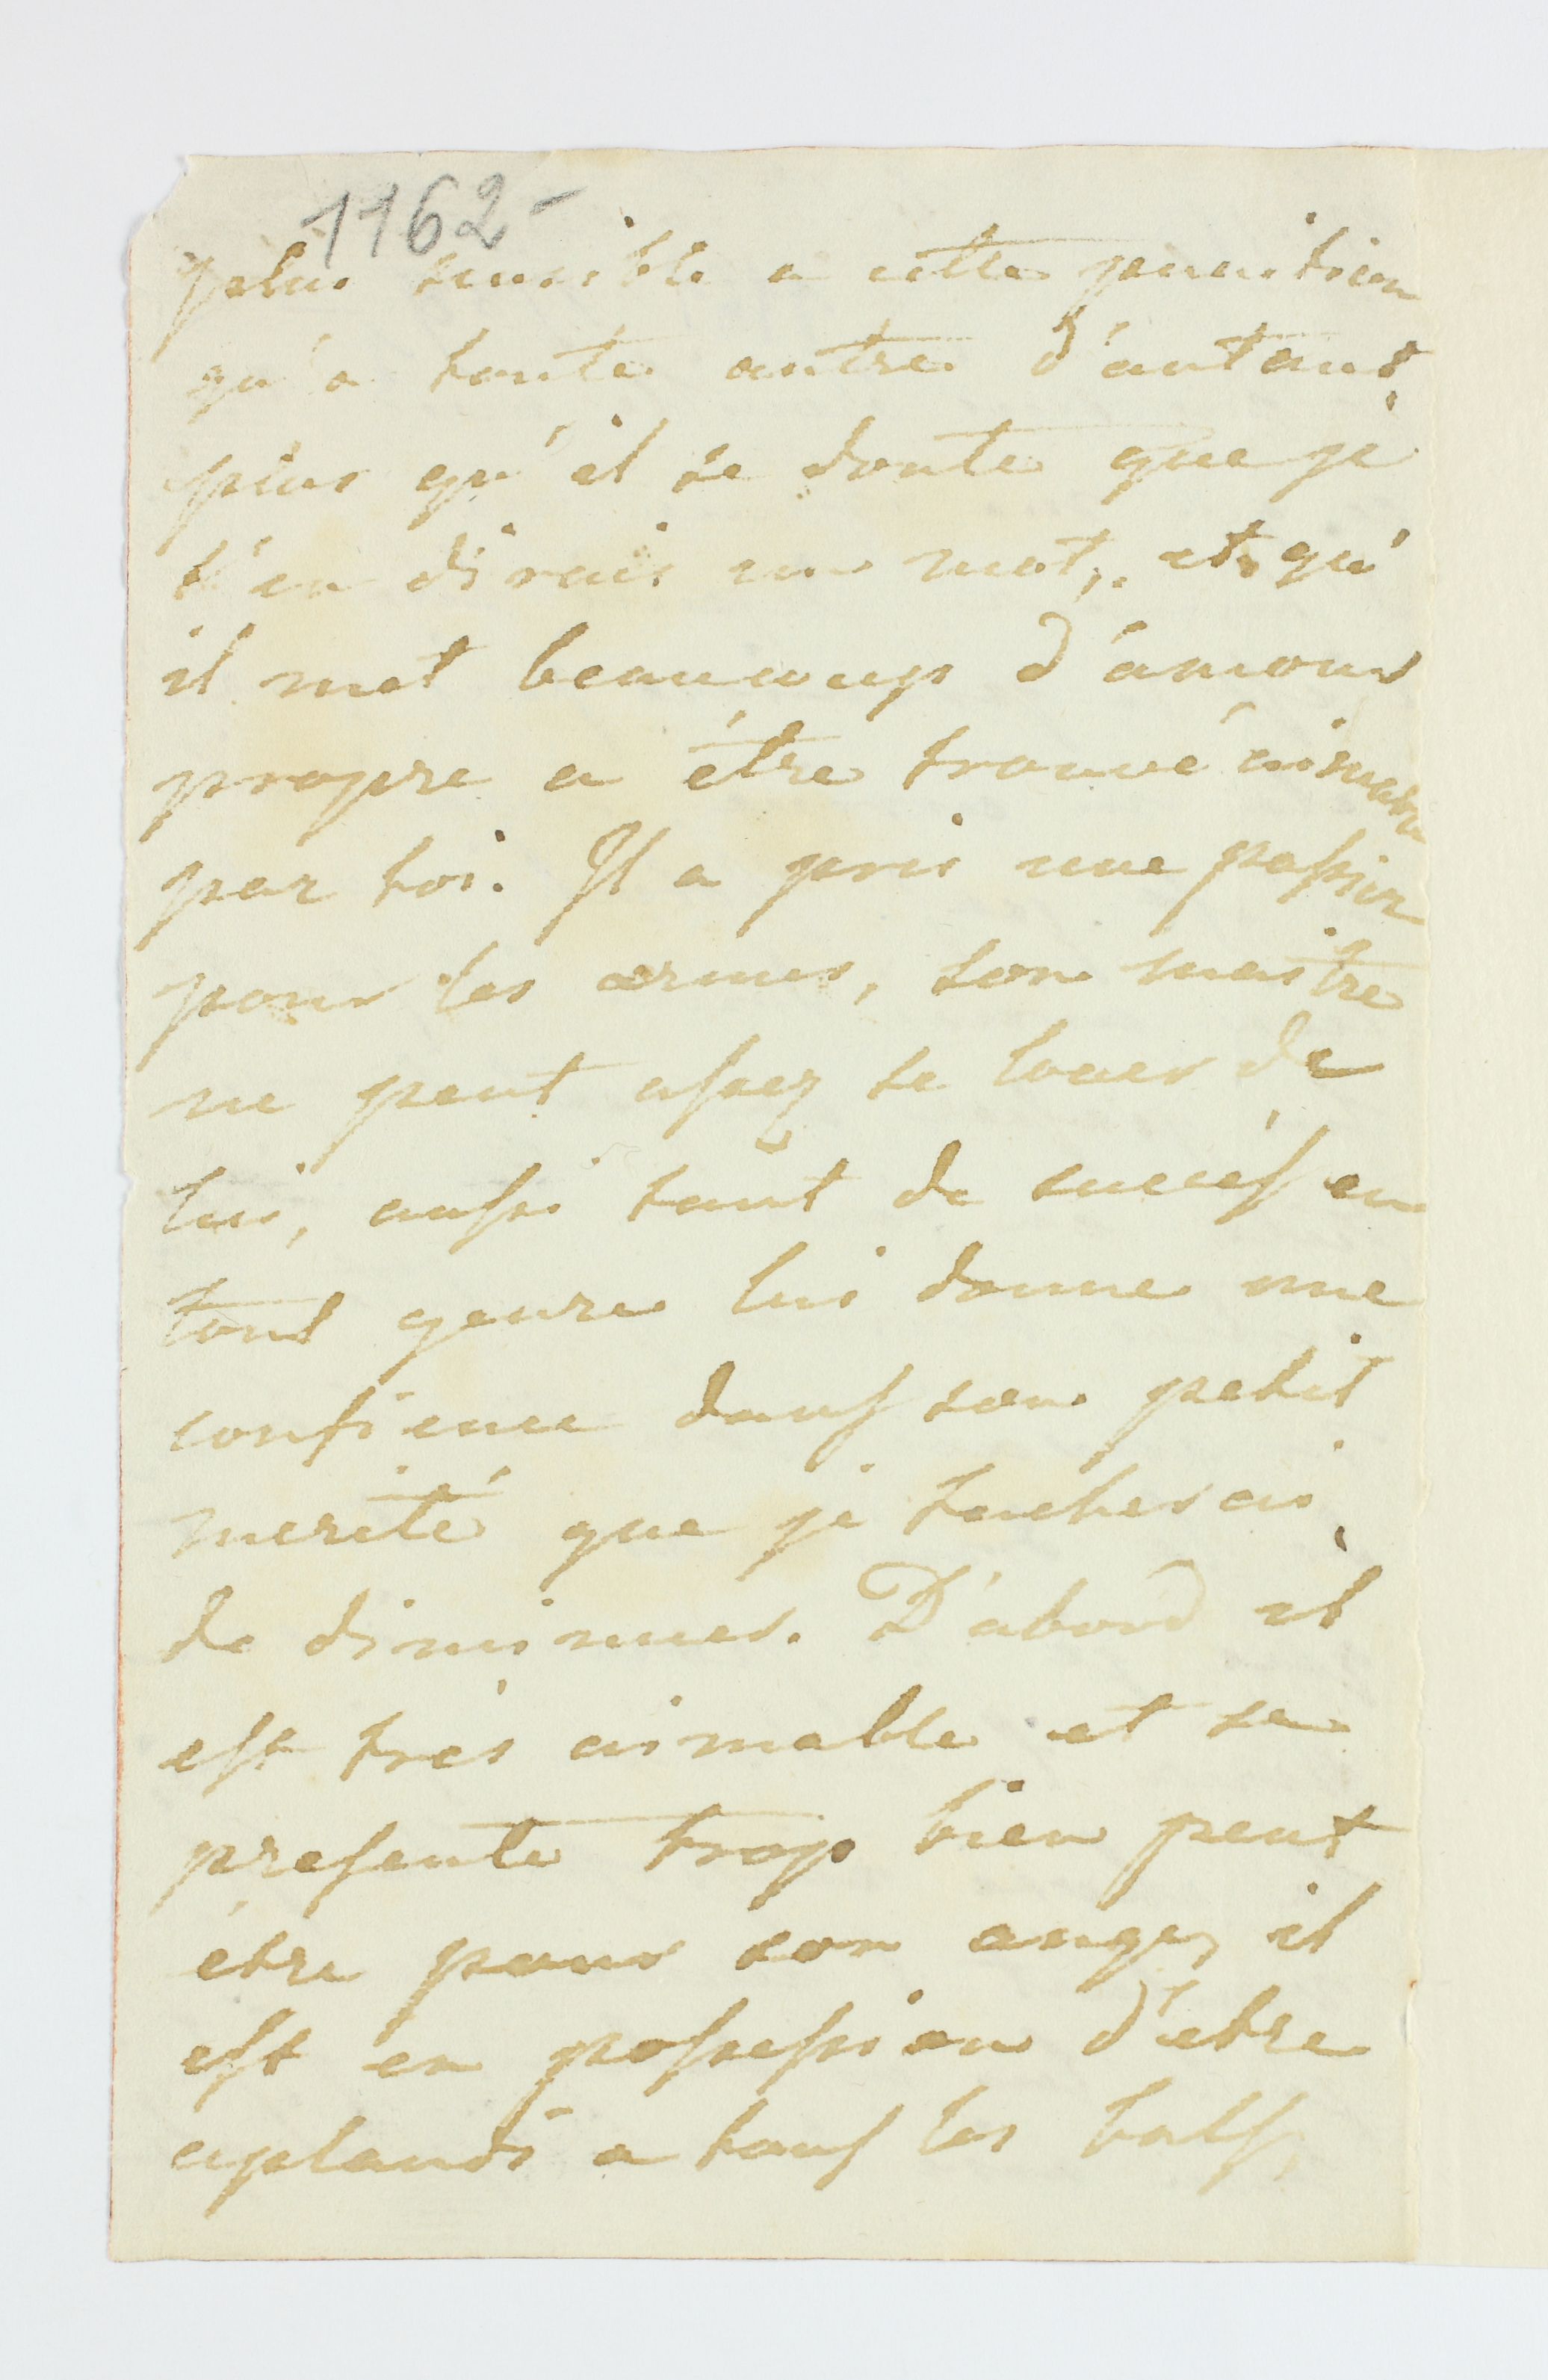 1162-
plus sensible a cette punition
qu'a toute autre d'autant
plus qu'il se doute que je
t'en dirais un mot, et qu'
il met beaucoup d'amour
propre a être trouvé aimable
par toi. Il a pris une passion
pour les armes, son maître
ne peut assez se louer de
lui, aussi tant de succés en
tout genre lui donne une
confience dans son petit
merité que je tacherai
de diminuer. D'abord il
est très aimable et se
presente trop bien peut
être pour son ange, il
est en possession d'etre
aplaudi a tous les bals,